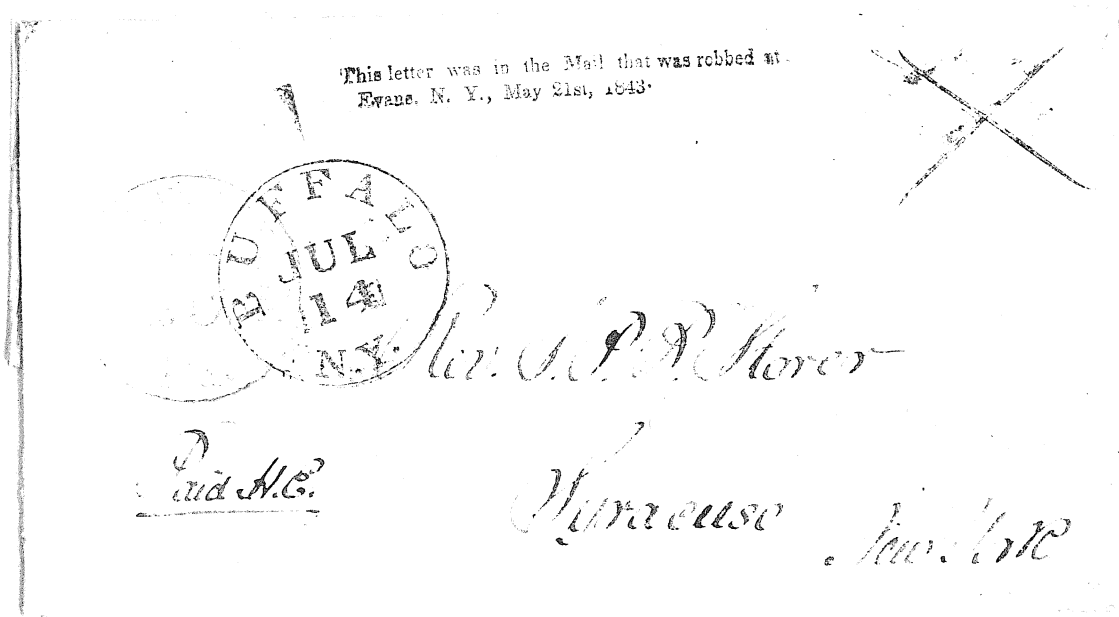 This letter was in the Mail that was robbed at
Evans, N. Y., May 21st, 1843.
BUFFALO
JUL
14
N.Y.
Rev. J. P. B. Storer
Paid H.C.
Syracuse
New York